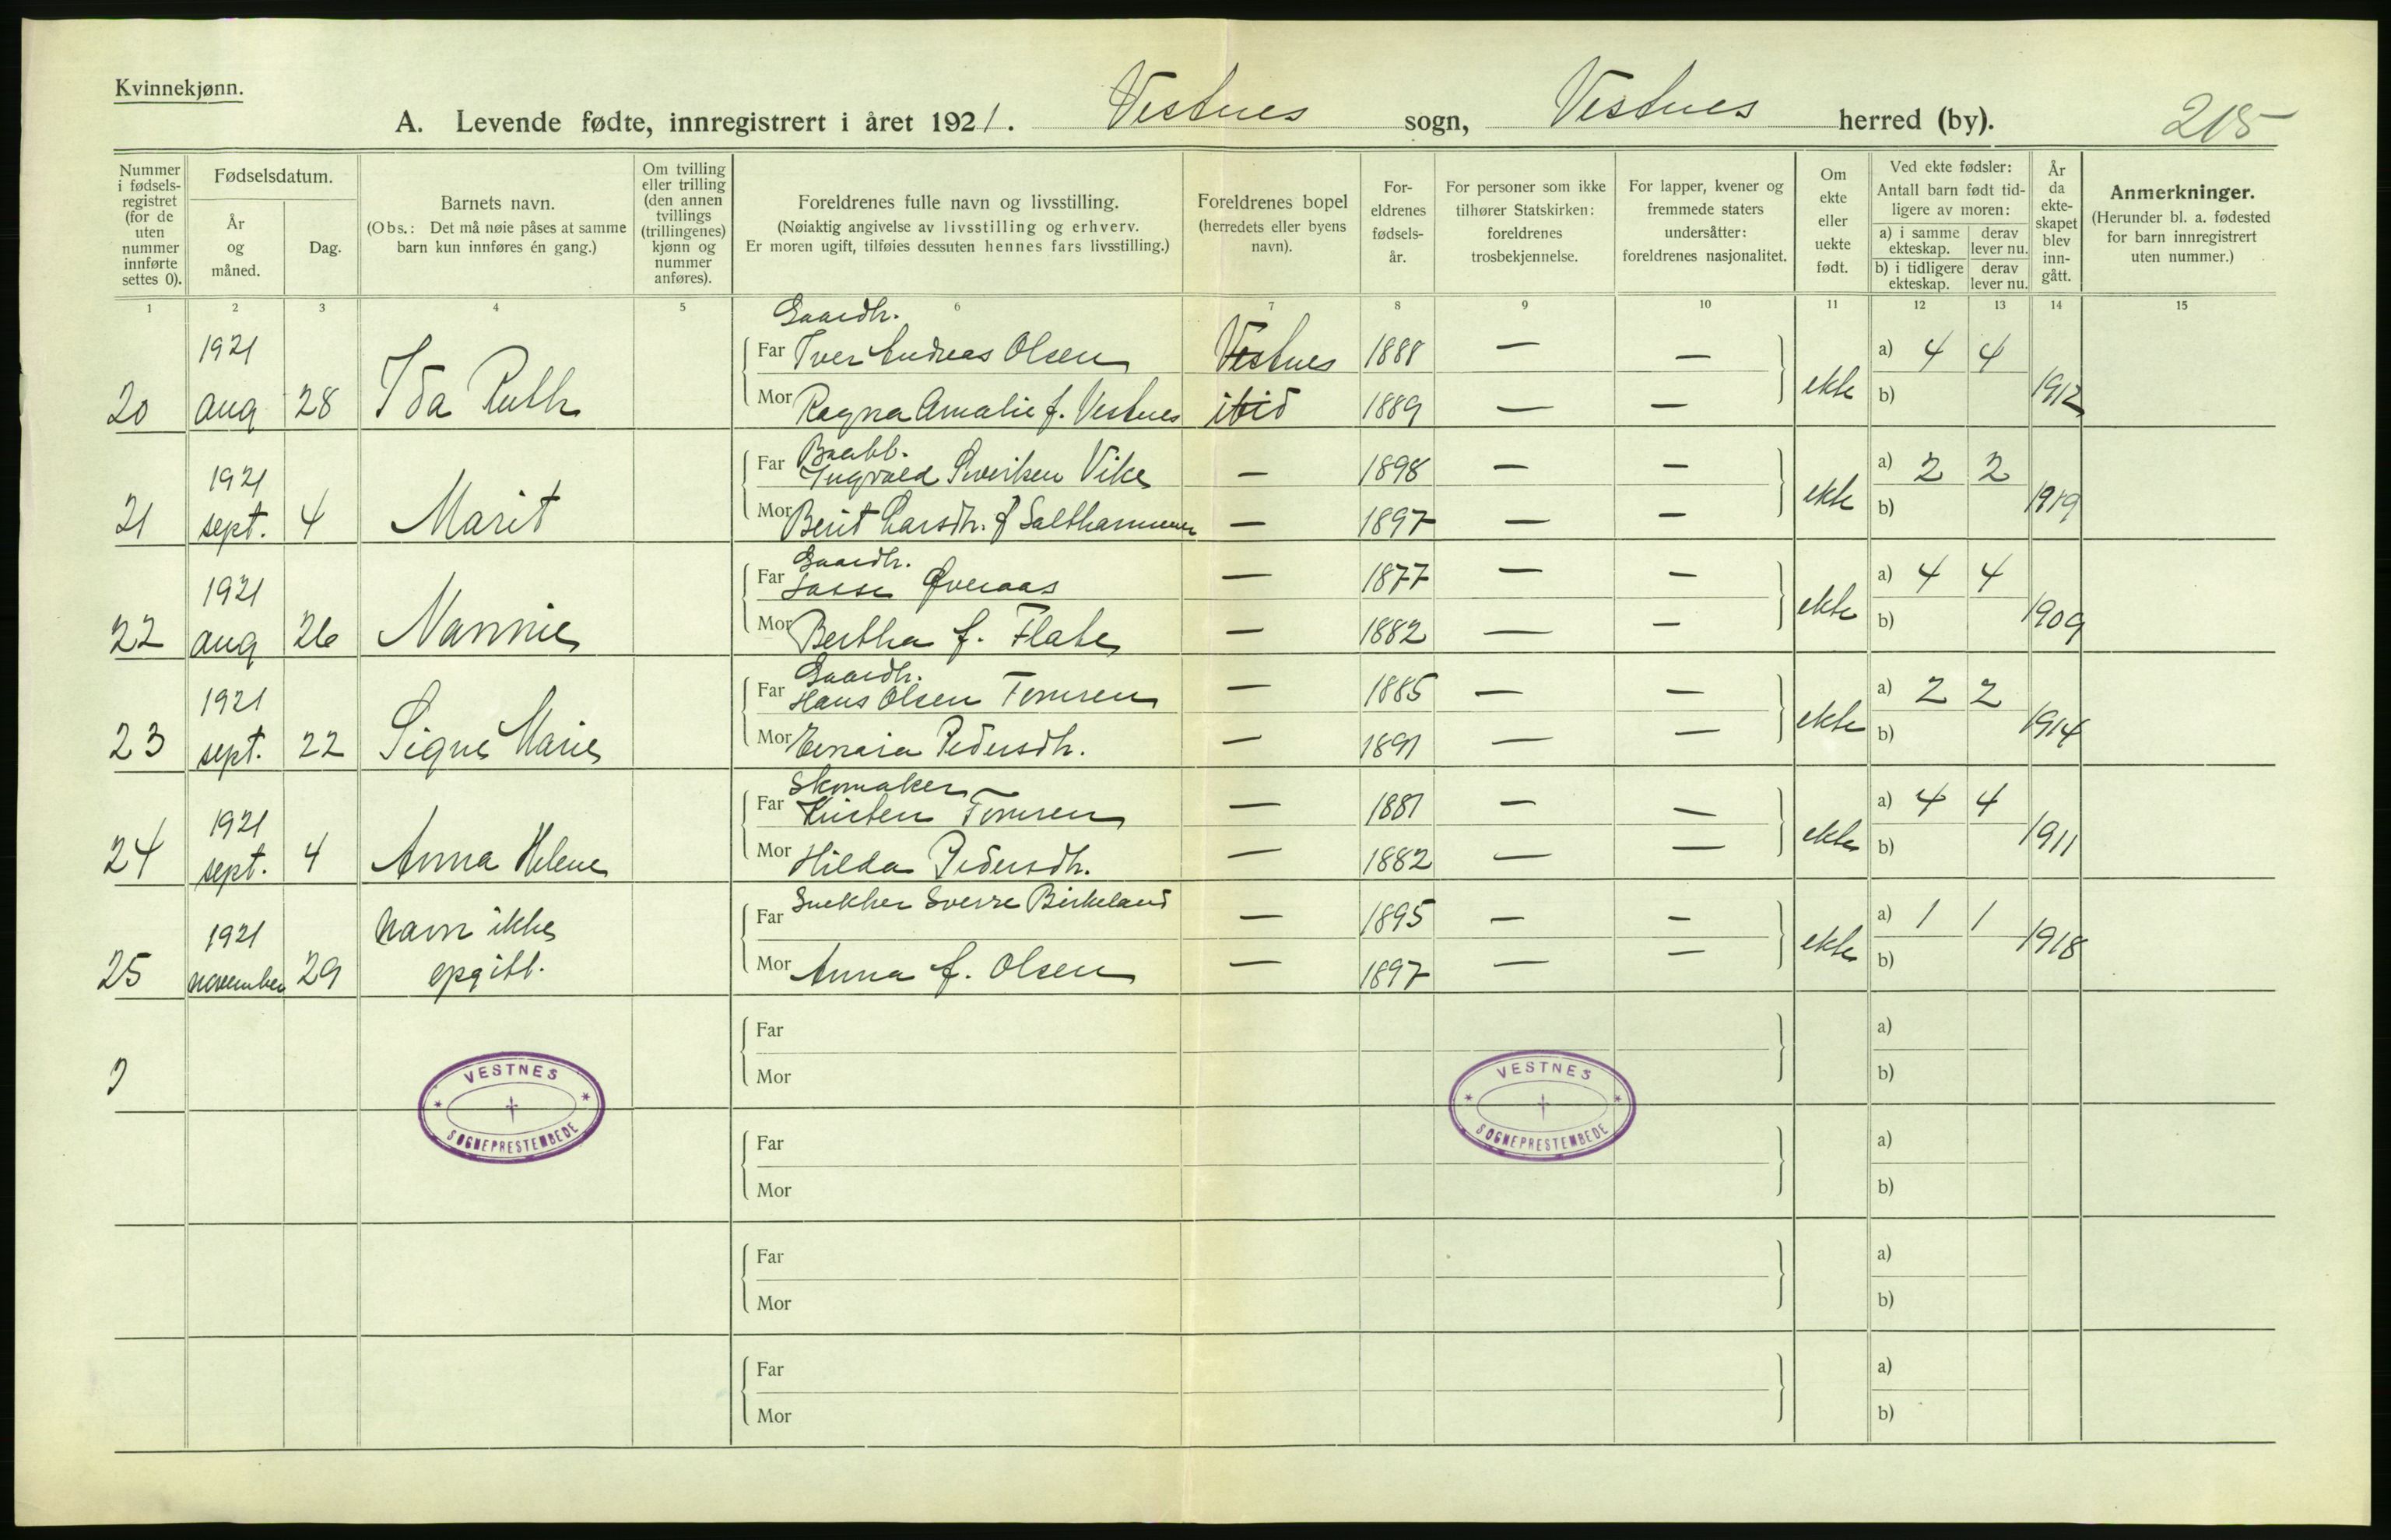 Kvinnekjønn.
A. Levende fødte, innregistrert i året 1921. Vestnes sogn, Vestnes herred (by). 215
Nummer i fødsels-registret (for de uten nummer innførte settes 0).
Fødselsdatum.
År og måned.
Dag.
Barnets navn.
(Obs.: Det må nøie påses at samme barn kun innføres én gang.)
Om tvilling eller trilling (den annen tvillings (trillingenes) kjønn og nummer anføres).
Foreldrenes fulle navn og livsstilling.
(Nøiaktig angivelse av livsstilling og erhverv.
Er moren ugift, tilføies dessuten hennes fars livsstilling.)
Foreldrenes bopel
(herredets eller byens navn).
For-eldrenes fødsels-år.
For personer som ikke tilhører Statskirken: foreldrenes trosbekjennelse.
For lapper, kvener og fremmede staters undersåtter: foreldrenes nasjonalitet.
Om ekte eller uekte født.
Ved ekte fødsler:
Antall barn født tid-ligere av moren:
a) i samme ekteskap. derav lever nu.
b) i tidligere ekteskap. derav lever nu.
År da ekte-skapet blev inn-gått.
Anmerkninger.
(Herunder bl. a. fødested for barn innregistrert uten nummer.)
1 2 3 4 5 6 7 8 9 10 11 12 13 14 15
Gaardbr.
1921 Far Iver Andreas Olsen Vestnes 1888 — — a) 4 4
20 aug 28 Ida Ruth Mor Ragna Amalie f. Vestnes ibid 1889 — — ekte b) 1912
1921 Far Ingvald Sivertsen Vike — 1898 — — a) 2 2
21 sept. 4 Marit Mor Berit Larsdtr. f Salthammer — 1897 — — ekte b) 1919
Gaardbr.
1921 Far Lasse Øveraas — 1877 — — a) 4 4
22 aug 26 Nannie Mor Bertha f. Flate — 1882 — — ekte b) 1909
Gaardbr.
1921 Far Hans Olsen Tomren — 1885 — — a) 2 2
23 sept. 22 Signe Marie Mor Pedersdtr. — 1891 — — ekte b) 1914
Skomaker
1921 Far Tomren — 1881 — — a) 4 4
24 sept. 4 Anna Helene Mor Hilda Pedersdtr. — 1882 — — ekte b) 1911
Snekker Sverre Birkeland
1921 Navn ikke Far — 1895 — — a) 1 1
25 november 29 opgitt. Mor Anna f. Olsen — 1897 — — ekte b) 1918
Far a)
Mor b)
VESTNES SOGNEPRESTEMBEDE
VESTNES SOGNEPRESTEMBEDE
Far a)
Mor b)
Far a)
Mor b)
Far a)
Mor b)